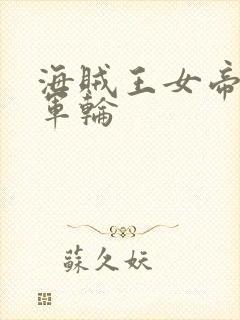 海賊王女帝
軍輪
蘇久妖